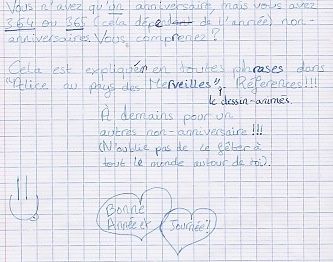 Vous n'avez qu'un anniversaire, mais vous avez
364 ou 365 (cela dépend de l'année) non-
anniversaires. Vous comprenez ?
Cela est expliquér en toutes phrases dans
"Alice au pays des Merveilles". Références!!!
le dessin-animés.
À demains pour un
autres non-anniversaire !!!
(N'oublie pas de le fêter à
tout le monde autour de toi).
Bonne
Année et
Journée!